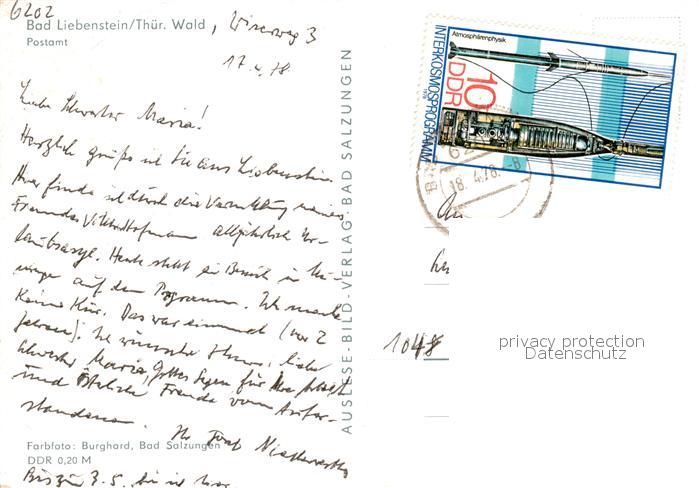 6202
Bad Liebenstein/Thür. Wald, Wiesenweg 3
Postamt
17.4.78
Liebe Schwester Maria!
Herzlich grüße ich Sie aus Liebenstein.
Hier finde ich durch die Vermittlung meines
Freundes Viktor Hofmann alljährlich Ur-
laubsasyl. Heute steht ein Besuch in
auf dem Programm. Ich mache
keine Kur. Das war einmal (vor 2
Jahren). Ich wünsche Ihnen, liebe
Schwester Maria, Gottes Segen für Ihre Arbeit
und österliche Freude vom Aufer-
standenen.
Ihr Josef
Farbfoto: Burghard, Bad Salzungen
DDR 0,20 M
Bis zum 3.5. bin ich hier
AUSLESE-BILD-VERLAG BAD SALZUNGEN
Atmosphärenphysik
INTERKOSMOSPROGRAMM
1978
DDR
10
18.4.78.-8
1048
privacy protection
Datenschutz